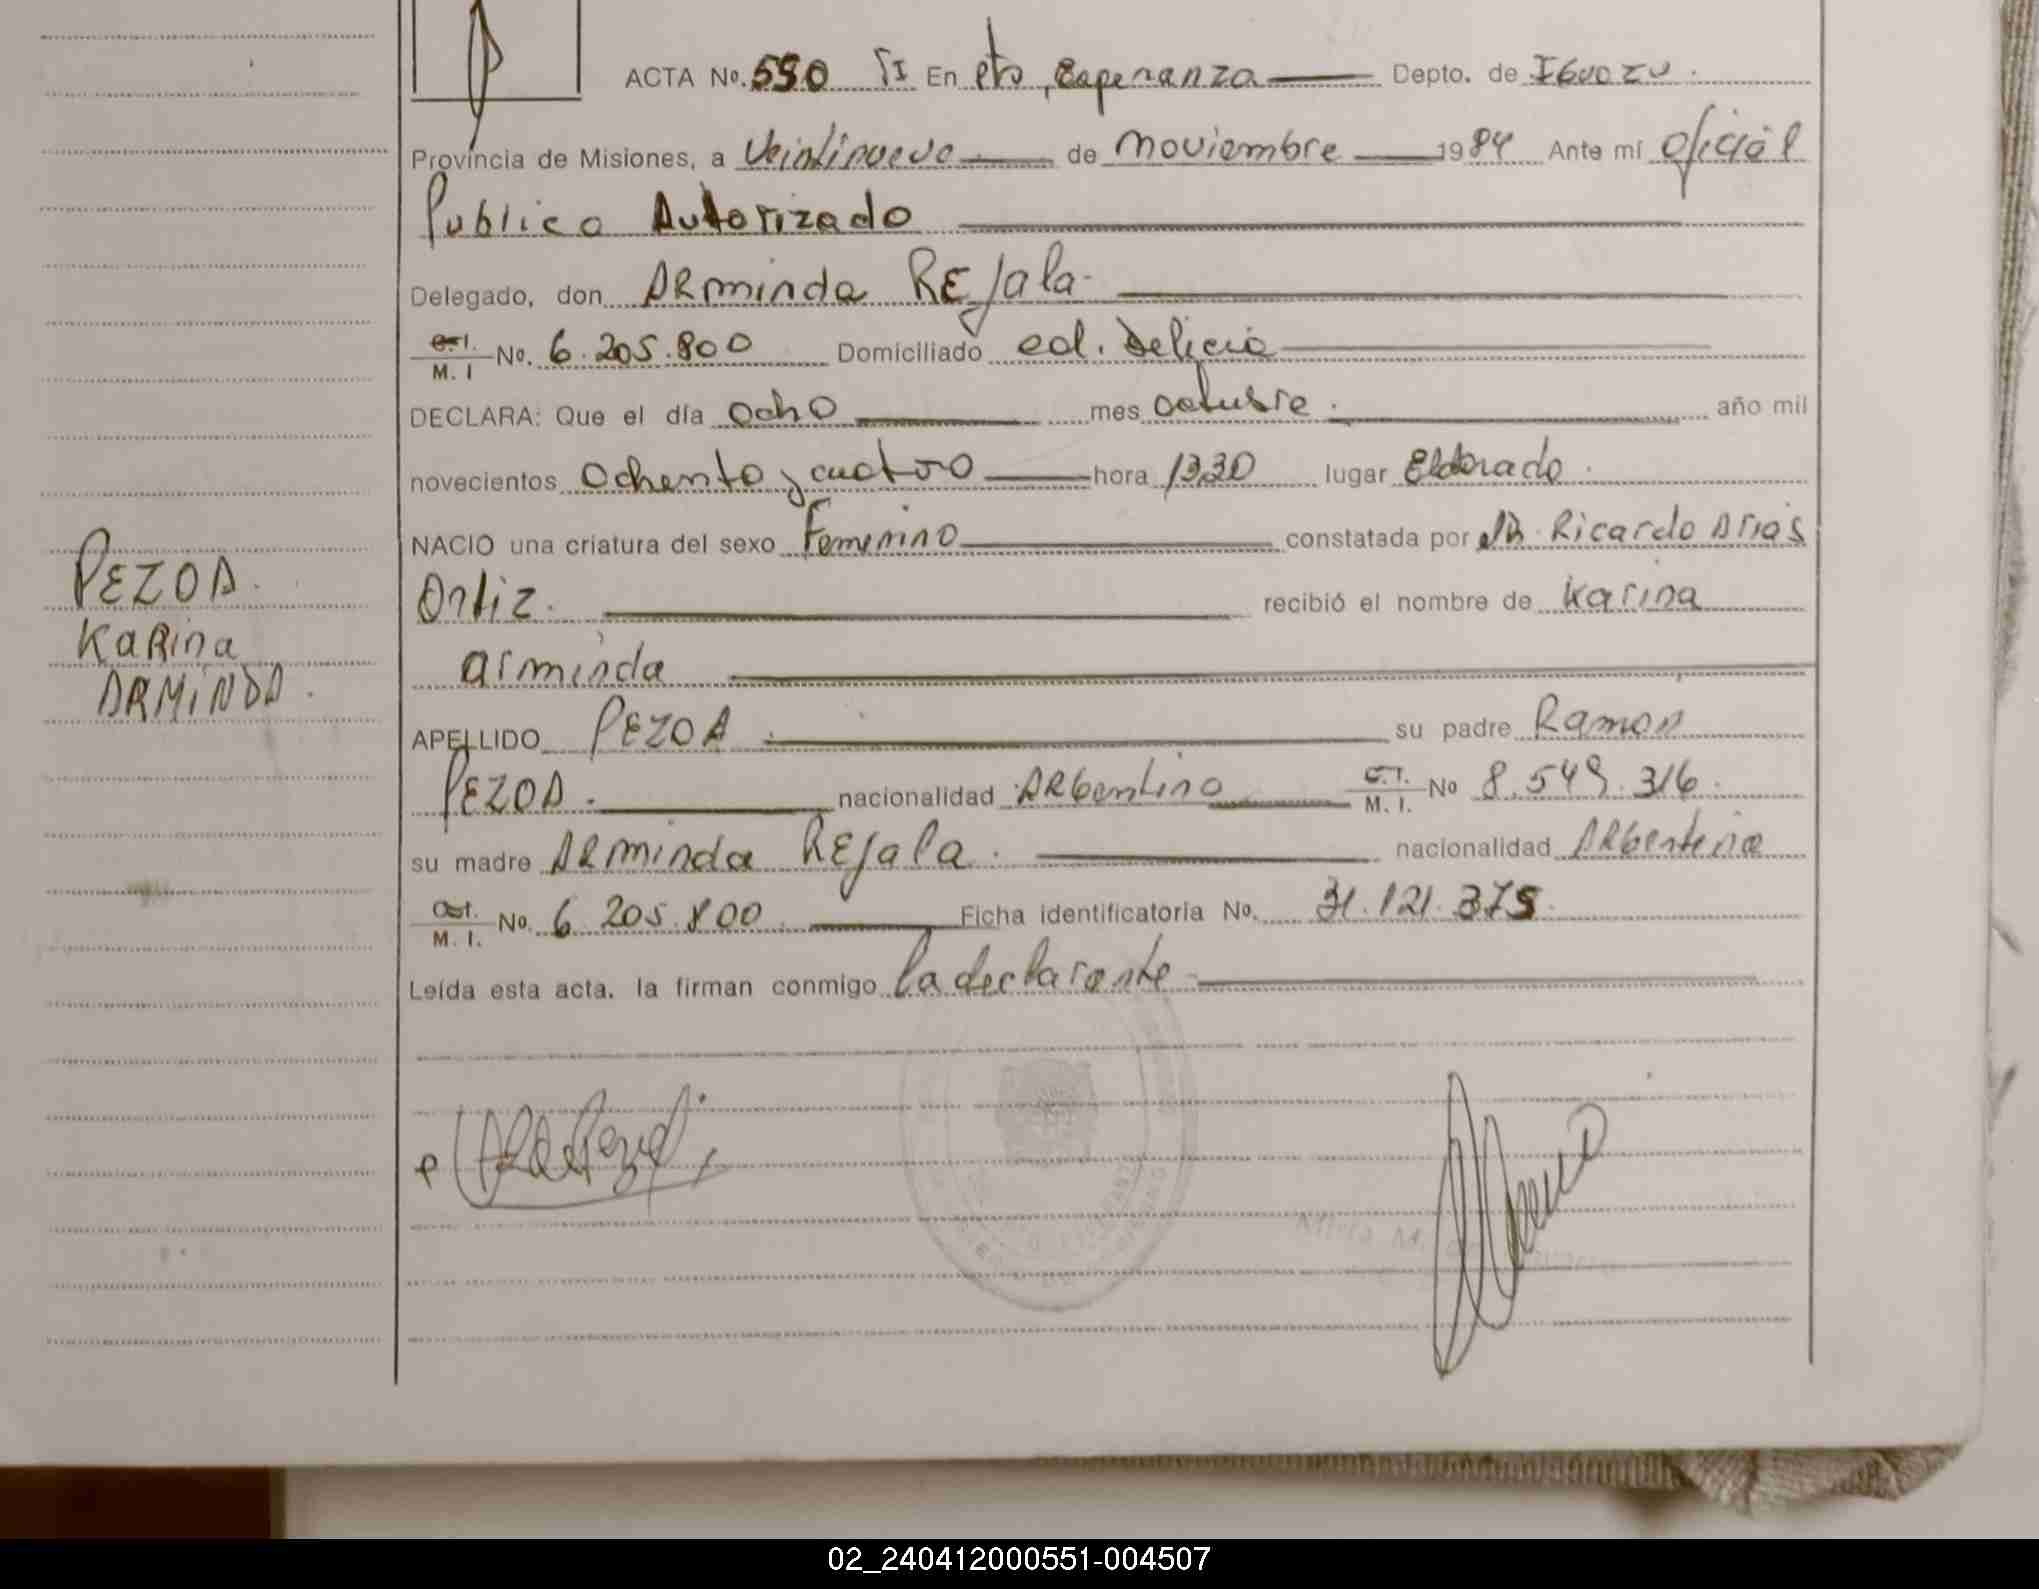 ACTA No. 550 TI En pto, Esperanza Depto. de IGuazu.
Provincia de Misiones, a Veintinueve de Noviembre 1984 Ante mí oficial
Publico Autorizado
Delegado, don Arminda REJala
C.I. M. I No. 6.205.800 Domiciliado col. Delicia
DECLARA: Que el día ocho mes octubre. año mil
novecientos Ochenta y cuatro hora 1330 lugar Eldorado.
NACIO una criatura del sexo Femenino constatada por Dr. Ricardo Arias
Ortiz. recibió el nombre de Karina
PEZOA.
Karina
ARMINDA.
arminda
APELLIDO PEZOA su padre Ramon
PEZOA. nacionalidad ARGentino C.I. M. I. No 8.549.316.
su madre Arminda REJala. nacionalidad ARGentina
M. I. No. 6.205.800 Ficha identificatoria No. 31.121.375
Leída esta acta. la firman conmigo la declarante
02_240412000551-004507